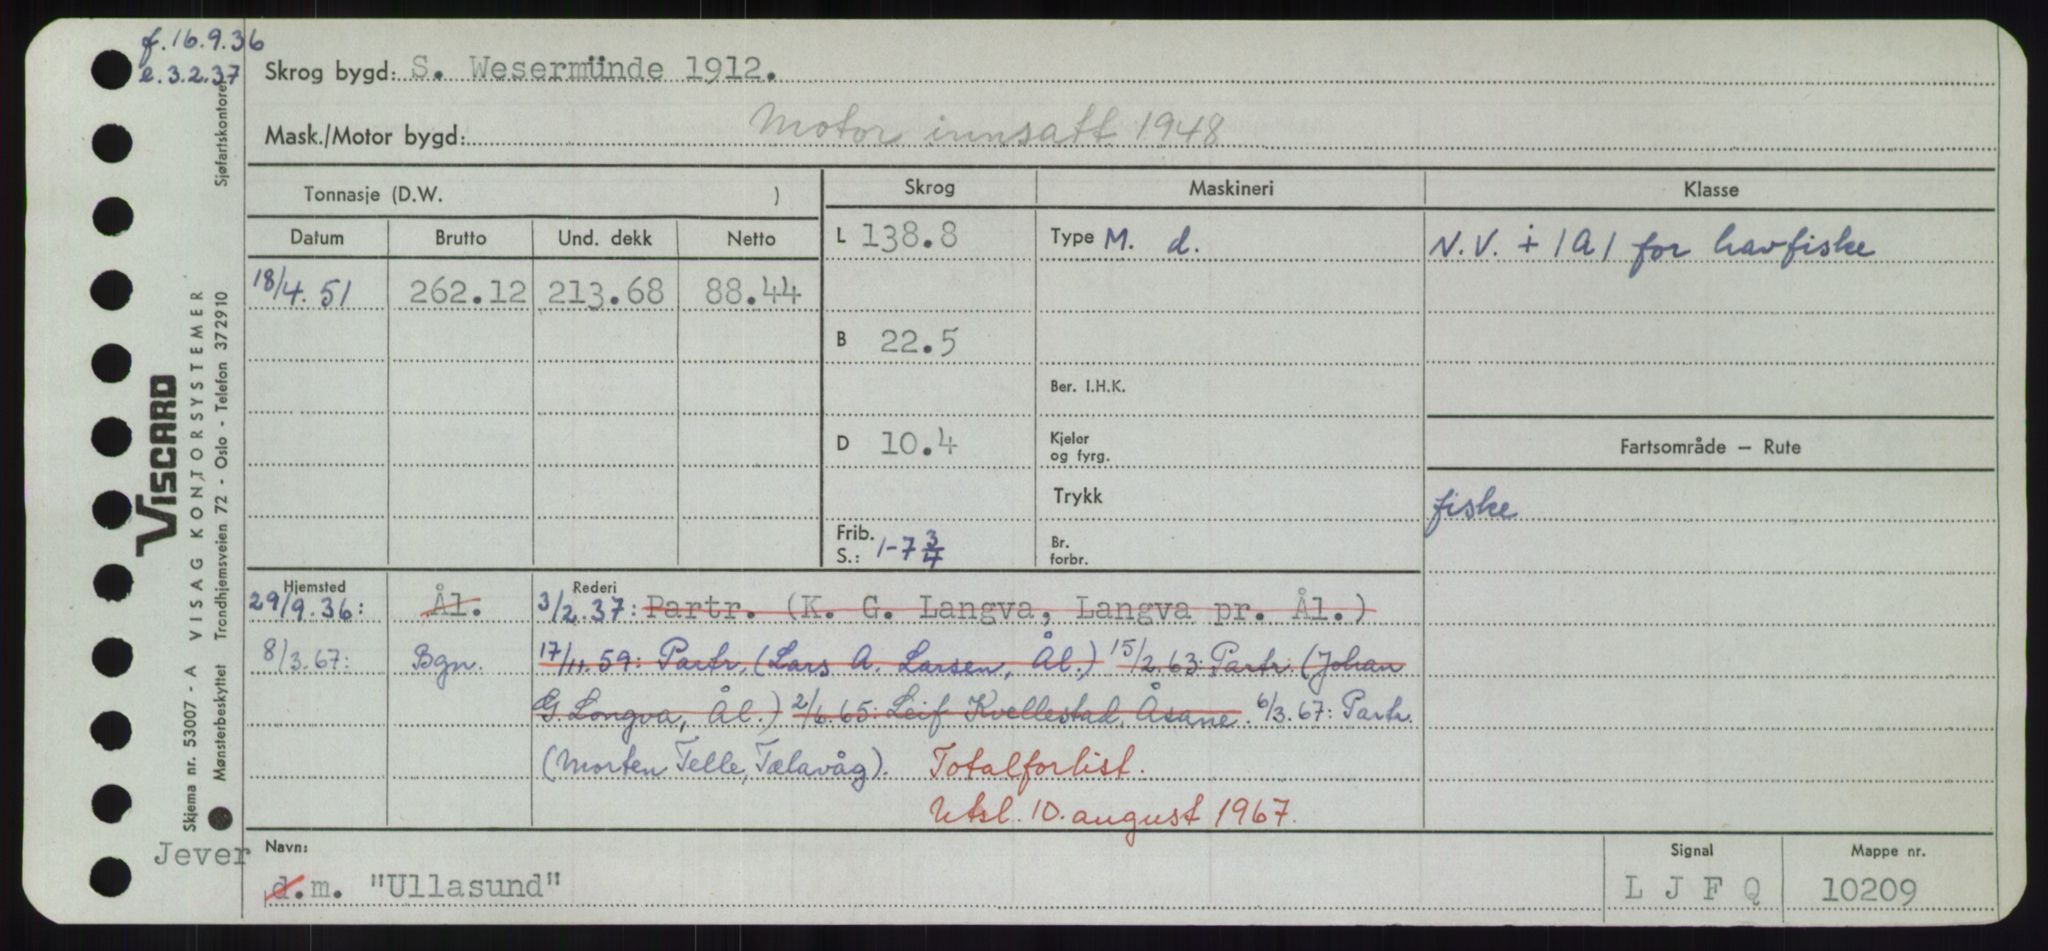 f. 16.9.36
e. 3.2.37
Skrog bygd: S. Wesermünde 1912.
Mask./Motor bygd: Motor innsatt 1948
Tonnasje (D.W. )
Skrog Maskineri Klasse
Datum Brutto Und. dekk Netto
L 138.8 Type M. d. N.V. + 1A1 for havfiske
18/4.51 262.12 213.68 88.44
B 22.5
Ber. I.H.K.
D 10.4 Kjeler og fyrg. Fartsområde — Rute
Trykk fiske
Frib. S.: 1-7 3/4 Br. forbr.
Hjemsted Rederi
29/9.36: Ål. 3/2.37: Partr. (K. G. Langva, Langva pr. Ål.)
8/3.67: Bgn. 17/11.59: Partr. (Lars A. Larsen, Ål.) 15/2.63: Partr. (Johan
G. Longva, Ål.) 2/6.65: Leif Kvellestad, Åsane. 6/3.67: Partr.
(Morten Telle, Telavåg). Totalforlist.
Utsl. 10. august 1967.
Jever
Navn: Signal Mappe nr.
d.m. "Ullasund" L J F Q 10209
VISCARD
VISAG KONTORSYSTEMER
Skjema nr. 53007 - A
Mønsterbeskyttet Trondhjemsveien 72 - Oslo - Telefon 372910 Sjøfartskontoret